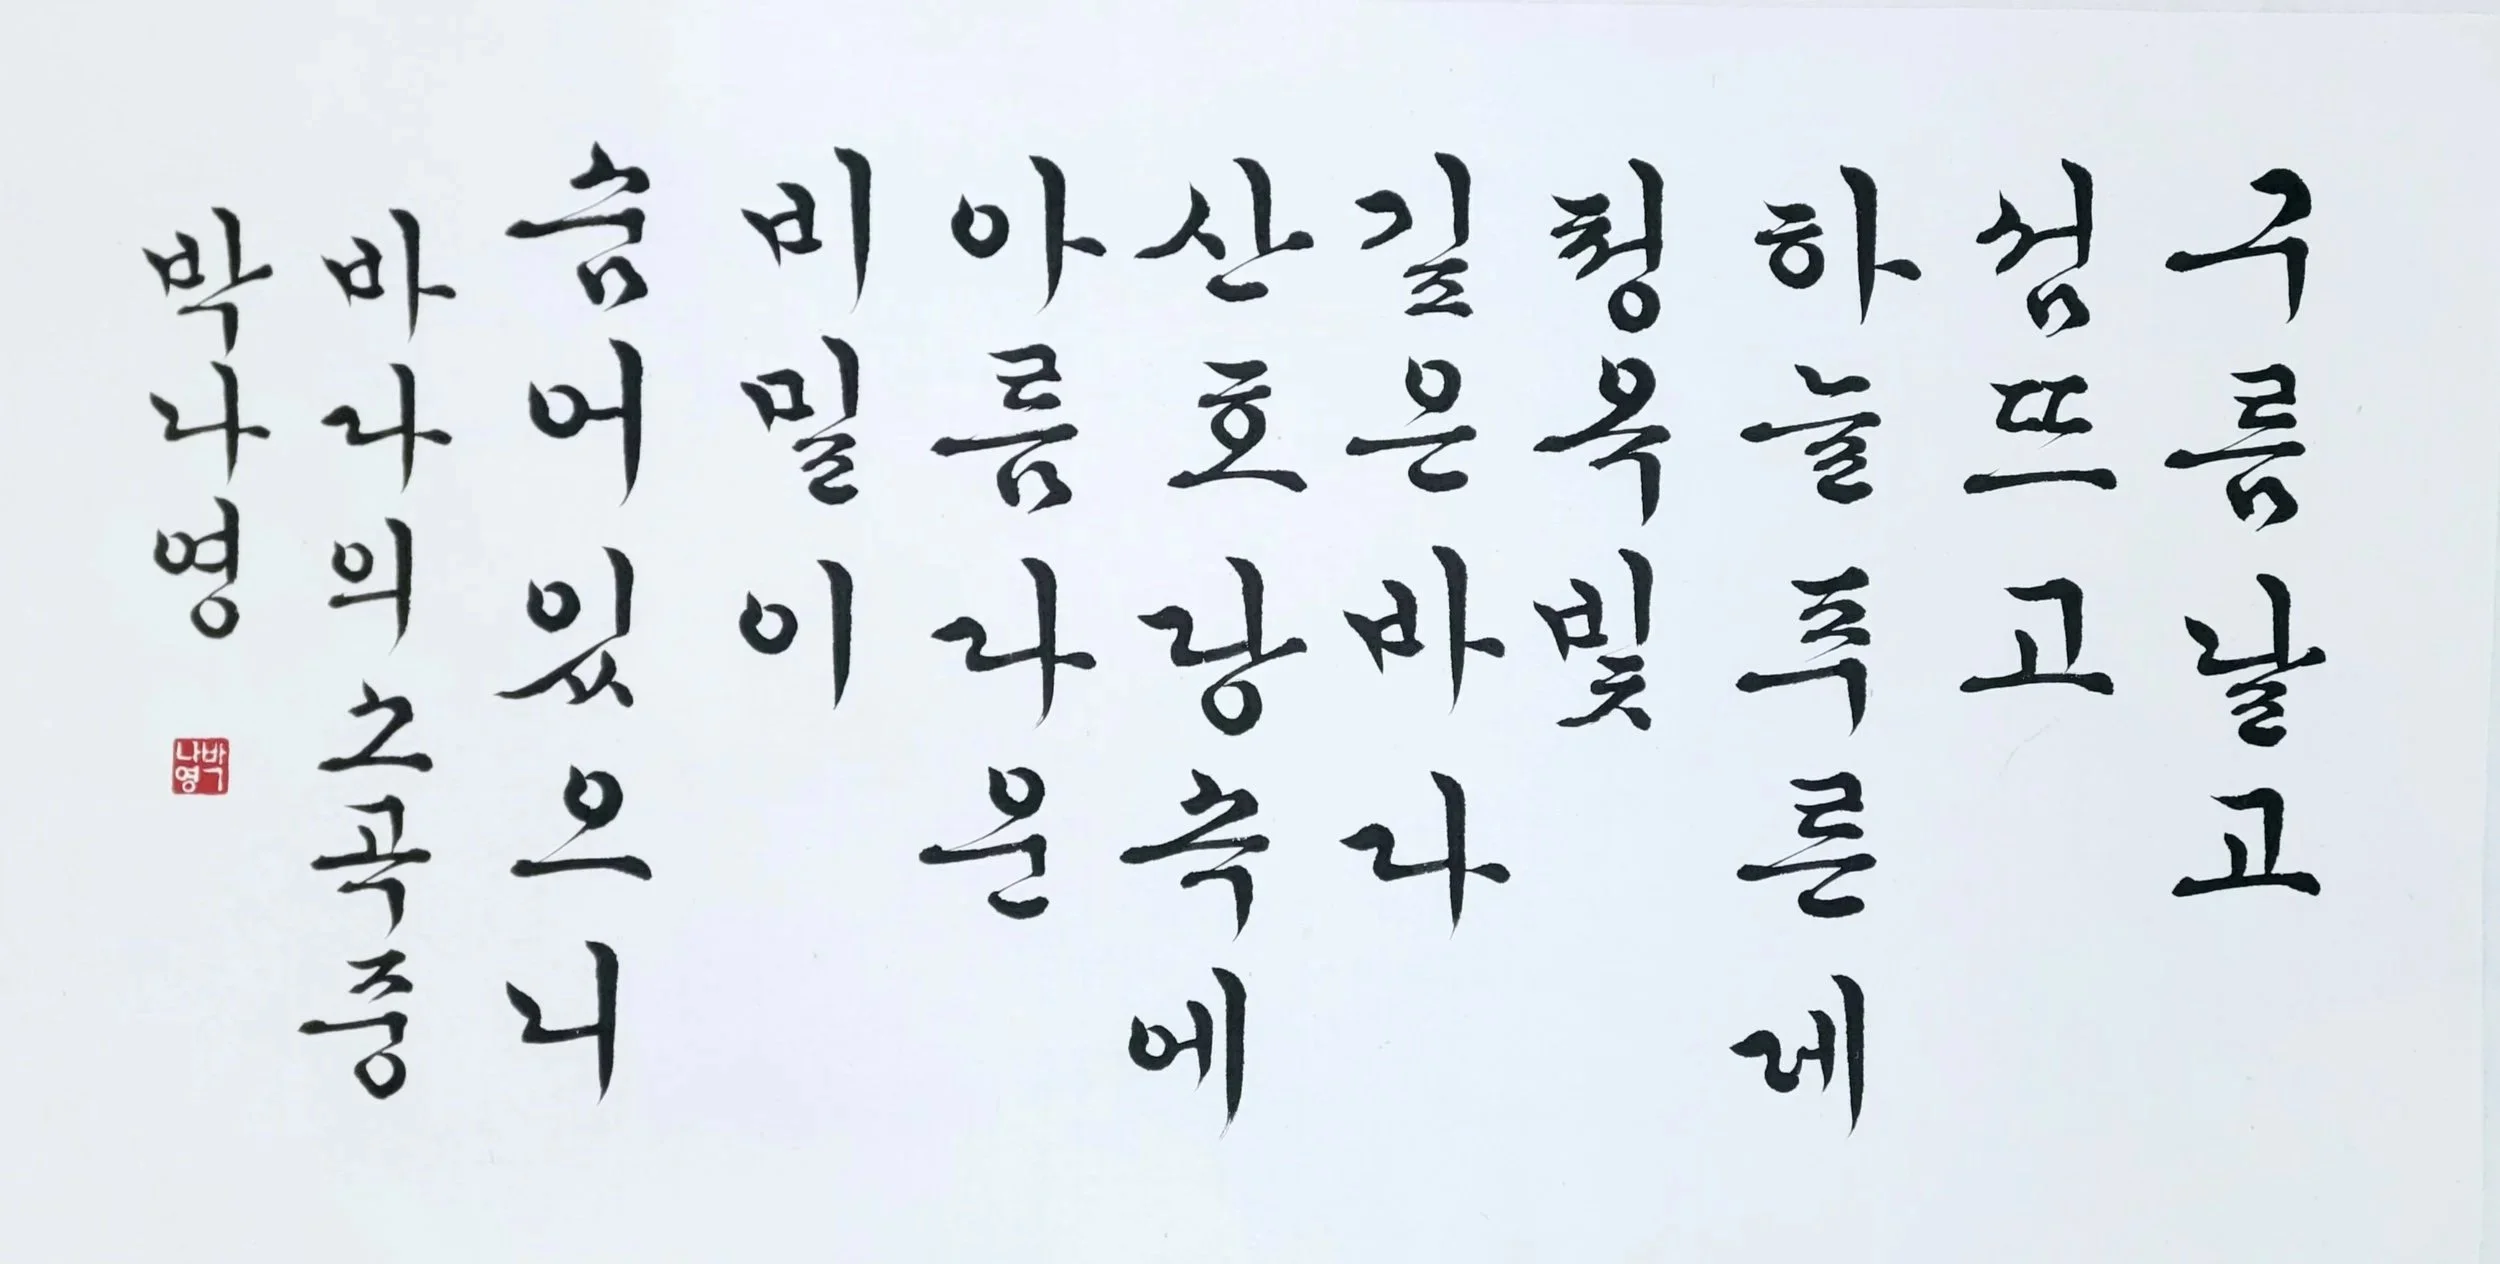 구름날고
섬뜨고
하늘푸른데
청옥빛
깊은바다
산호당속에
아름다운
비밀이
숨어있으니
바다의소곡중
박나영
박나영